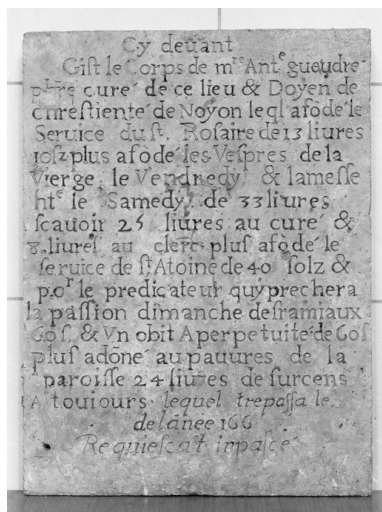 Cy deuant
Gist le Corps de mre Ante gueudre
pbre curé de ce lieu & Doyen de
chrestienté de Noyon leql a fōdé le
Seruice du st. Rosaire de 13 liures
10 solz plus a fōdé les Vespres de la
Vierge le Vendredy & la messe
hte le Samedy de 33 liures
scauoir 25 liures au curé &
8. liures au clerc plus a fōdé le
seruice de st Atoine de 40 solz &
por le predicateur quy prechera
la passion dimanche des ramiaux
60 s. & Vn obit A perpetuité de 60 s
plus a doné au pauures de la
paroisse 24 liures de surcens
A touiours lequel trepassa le
de lānée 166
Requiescat in pace